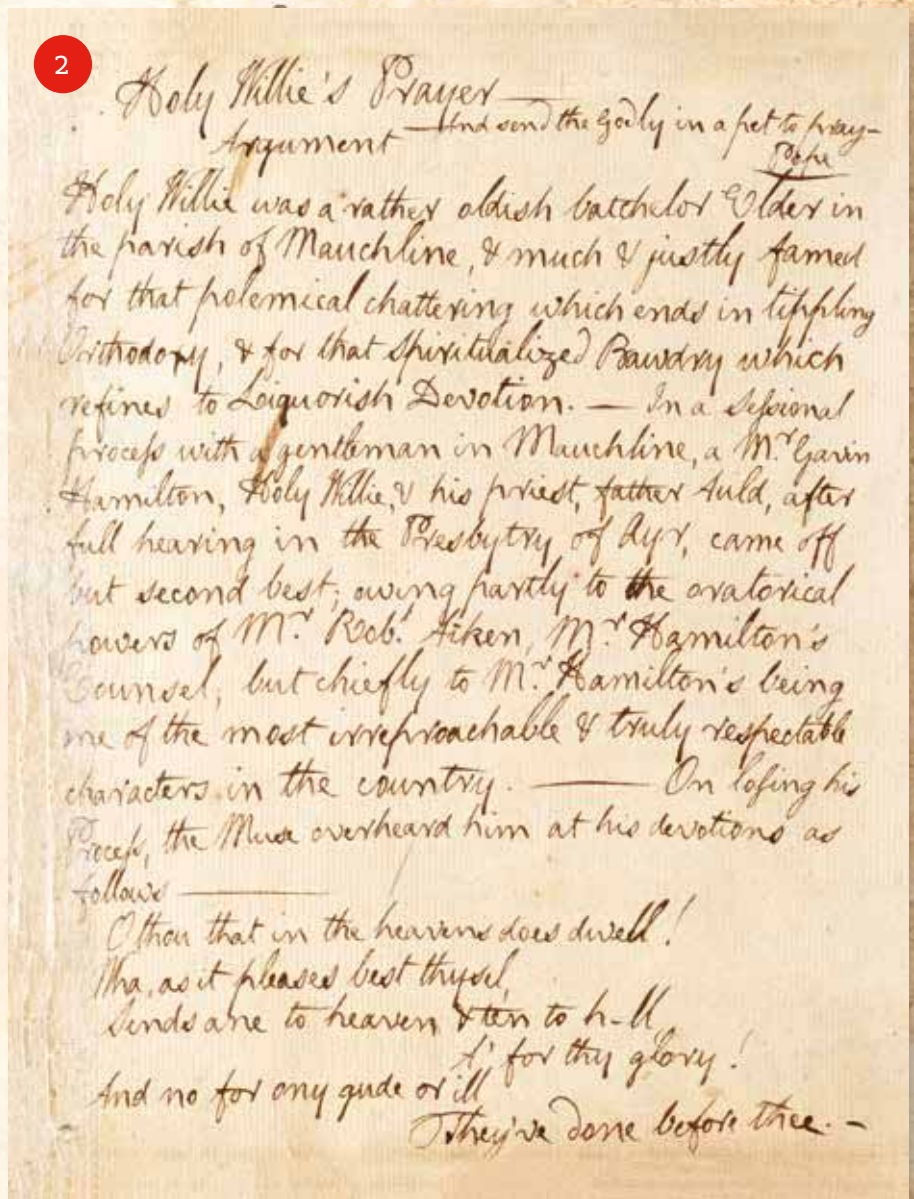 2
Holy Willie's Prayer —
And send the Godly in a pet to pray —
Argument
Pope
Holy Willie was a rather oldish batchelor Elder in
the parish of Mauchline, & much & justly famed
for that polemical chattering which ends in tippling
Orthodoxy, & for that Spiritualized Bawdry which
refines to Liquorish Devotion. — In a Sessional
process with a gentleman in Mauchline, a Mr. Gavin
Hamilton, Holy Willie, & his priest, father Auld, after
full hearing in the Presbytry of Ayr, came off
but second best; owing partly to the oratorical
powers of Mr. Robt. Aiken, Mr. Hamilton's
Counsel; but chiefly to Mr. Hamilton's being
one of the most irreproachable & truly respectable
characters in the country. — On losing his
Process, the Muse overheard him at his devotions as
follows —
O thou that in the heavens does dwell!
Wha, as it pleases best thysel,
Sends ane to heaven & ten to h-ll,
A' for thy glory!
And no for ony gude or ill
They've done before thee. —